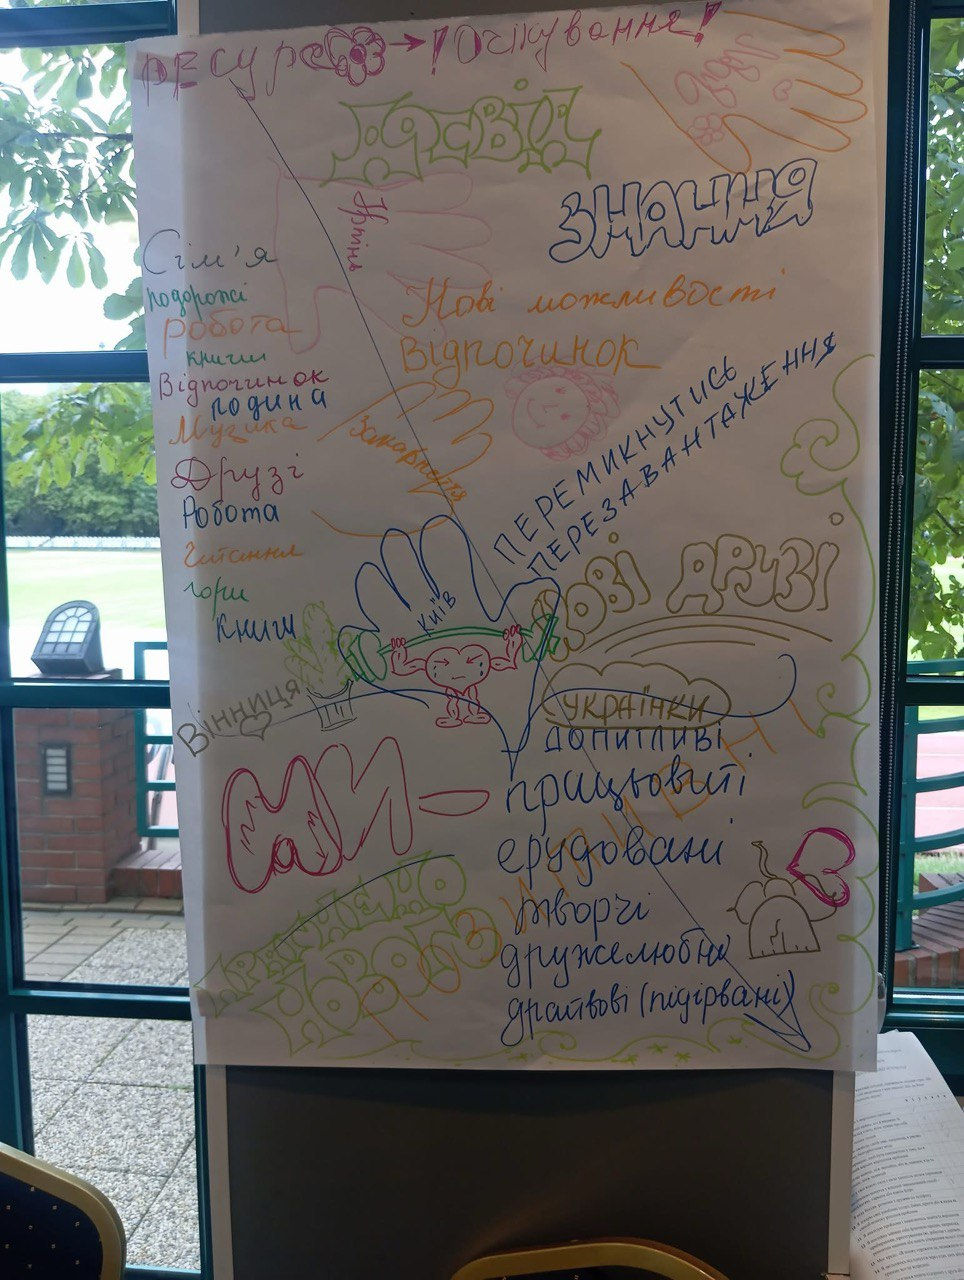 РЕСУРС → ! Очікування!
Львів
ДОСВІД
Умань
ЗНАННЯ
Сім'я
подорожі
робота
книги
Відпочинок
родина
Музика
Друзі
Робота
Читання
гори
Книги
Нові можливості
Відпочинок
Закарпаття
ПЕРЕМИКНУТИСЬ
ПЕРЕЗАВАНТАЖЕННЯ
Київ
НОВІ ДРУЗІ
Вінниця
УКРАЇНКИ
МИ –
допитливі
працьовиті
ерудовані
творчі
дружелюбні
драйвові (підірвані)